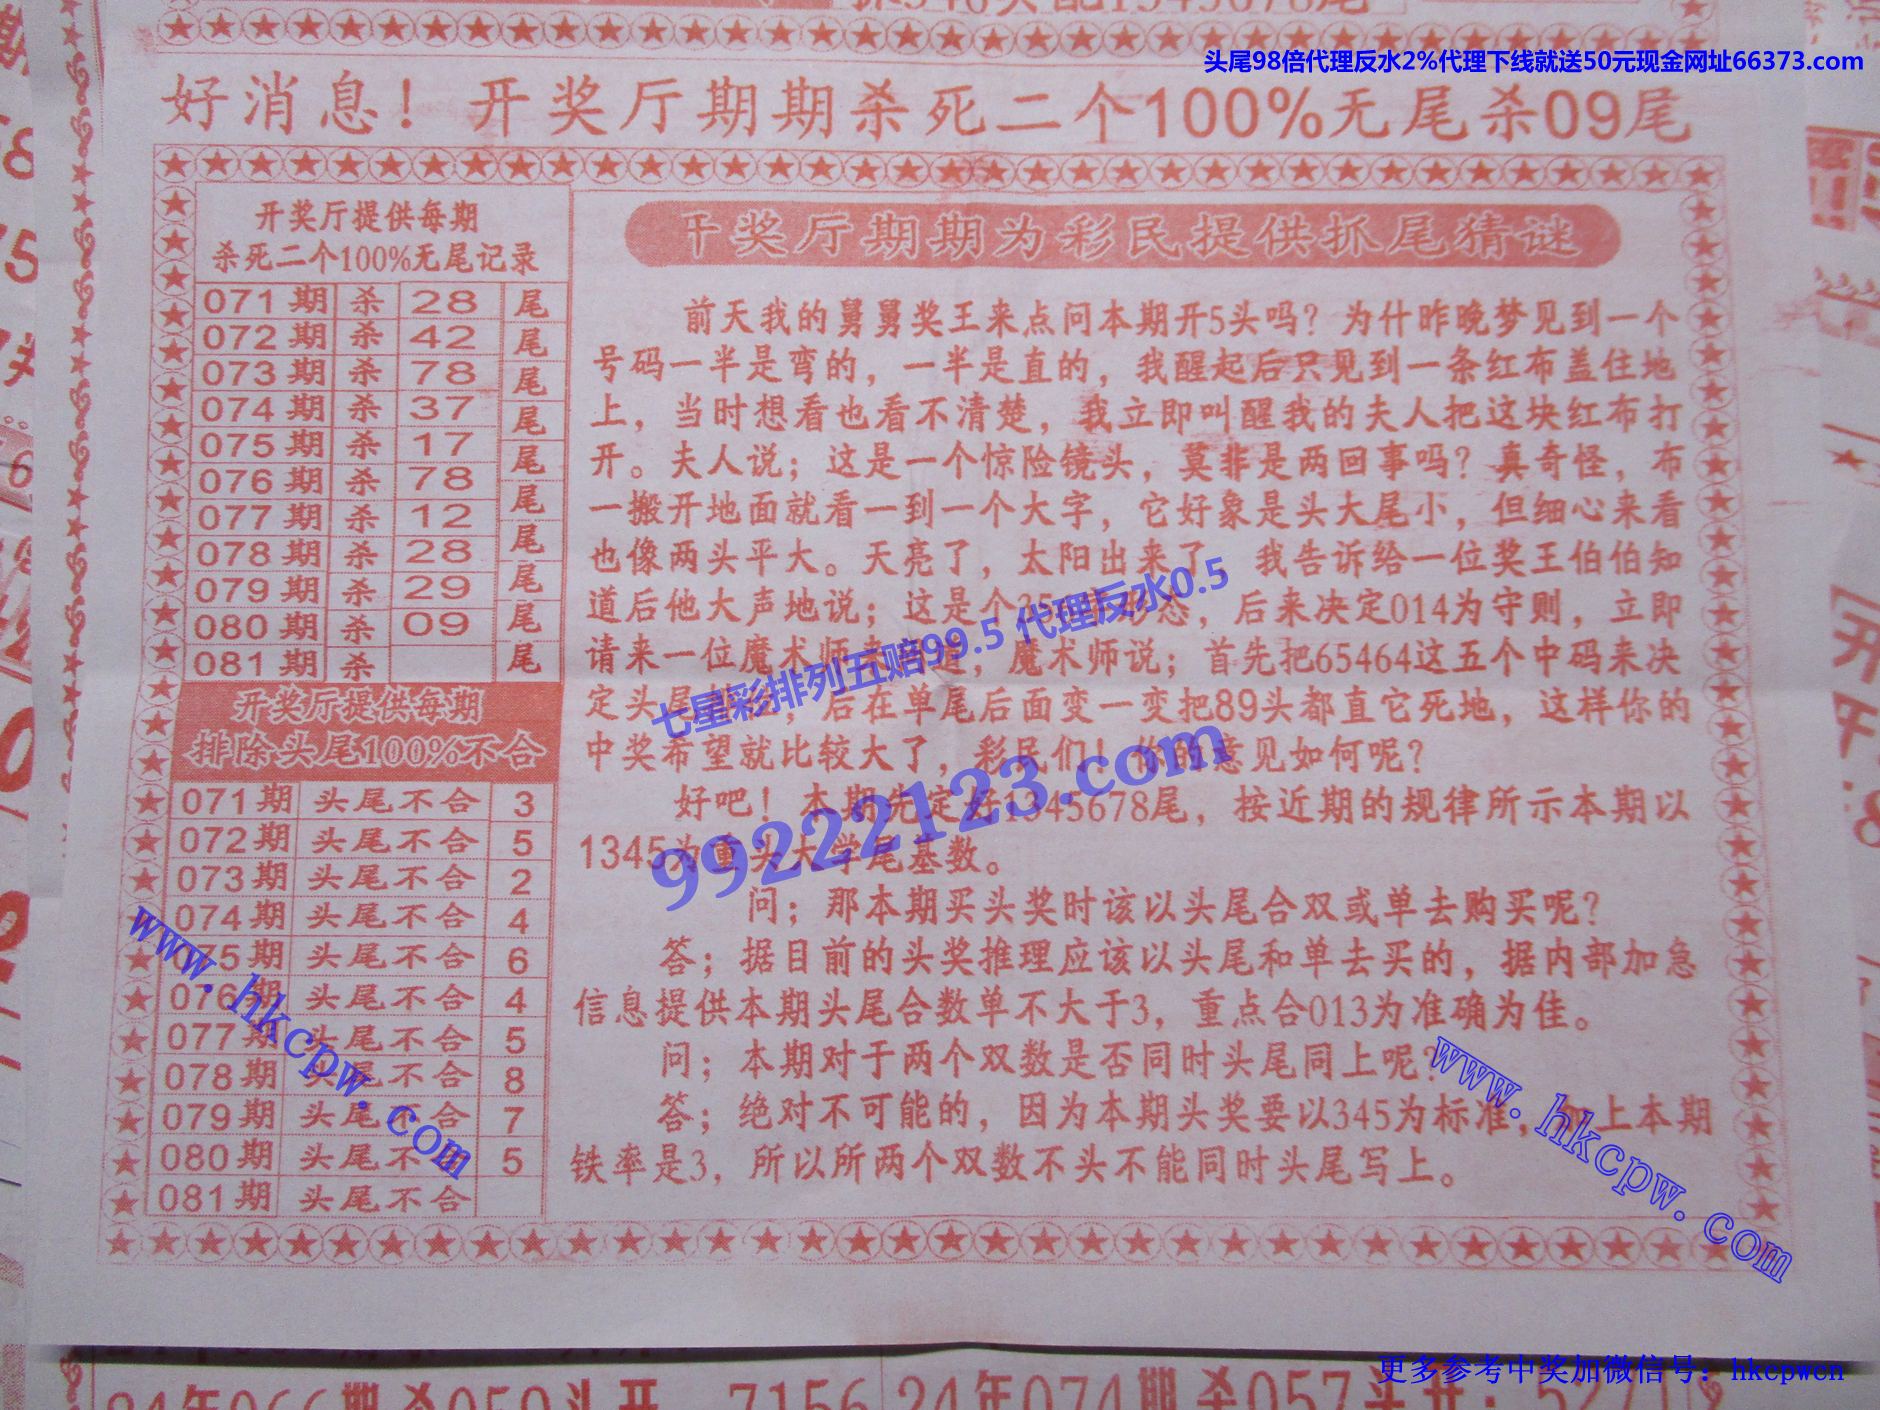 头尾98倍代理反水2%代理下线就送50元现金网址66373.com
好消息！开奖厅期期杀死二个100%无尾杀09尾
开奖厅提供每期
杀死二个100%无尾记录
071期 杀 28 尾
072期 杀 42 尾
073期 杀 78 尾
074期 杀 37 尾
075期 杀 17 尾
076期 杀 78 尾
077期 杀 12 尾
078期 杀 28 尾
079期 杀 29 尾
080期 杀 09 尾
081期 杀 尾
开奖厅提供每期
排除头尾100%不合
071期 头尾不合 3
072期 头尾不合 5
073期 头尾不合 2
074期 头尾不合 4
075期 头尾不合 6
076期 头尾不合 4
077期 头尾不合 5
078期 头尾不合 8
079期 头尾不合 7
080期 头尾不合 5
081期 头尾不合
开奖厅期期为彩民提供抓尾猜谜
前天我的舅舅奖王来点问本期开5头吗？为什昨晚梦见到一个
号码一半是弯的，一半是直的，我醒起后只见到一条红布盖住地
上，当时想看也看不清楚，我立即叫醒我的夫人把这块红布打
开。夫人说；这是一个惊险镜头，莫非是两回事吗？真奇怪，布
一搬开地面就看一到一个大字，它好象是头大尾小，但细心来看
也像两头平大。天亮了，太阳出来了，我告诉给一位奖王伯伯知
道后他大声地说；这是个 态，后来决定014为守则，立即
请来一位魔术师 ，魔术师说；首先把65464这五个中码来决
定头尾 ，后在单尾后面变一变把89头都直它死地，这样你的
中奖希望就比较大了，彩民们！你的意见如何呢？
好吧！本期先定好1345678尾，按近期的规律所示本期以
1345为重头大学尾基数。
问；那本期买头奖时该以头尾合双或单去购买呢？
答；据目前的头奖推理应该以头尾和单去买的，据内部加急
信息提供本期头尾合数单不大于3，重点合013为准确为佳。
问；本期对于两个双数是否同时头尾同上呢？
答；绝对不可能的，因为本期头奖要以345为标准，加上本期
铁率是3，所以所两个双数不头不能同时头尾写上。
七星彩排列五赔99.5 代理反水0.5
99222123.com
www.hkcpw.com
www.hkcpw.com
更多参考中奖加微信号：hkcpwcn
24年074期杀057头开：